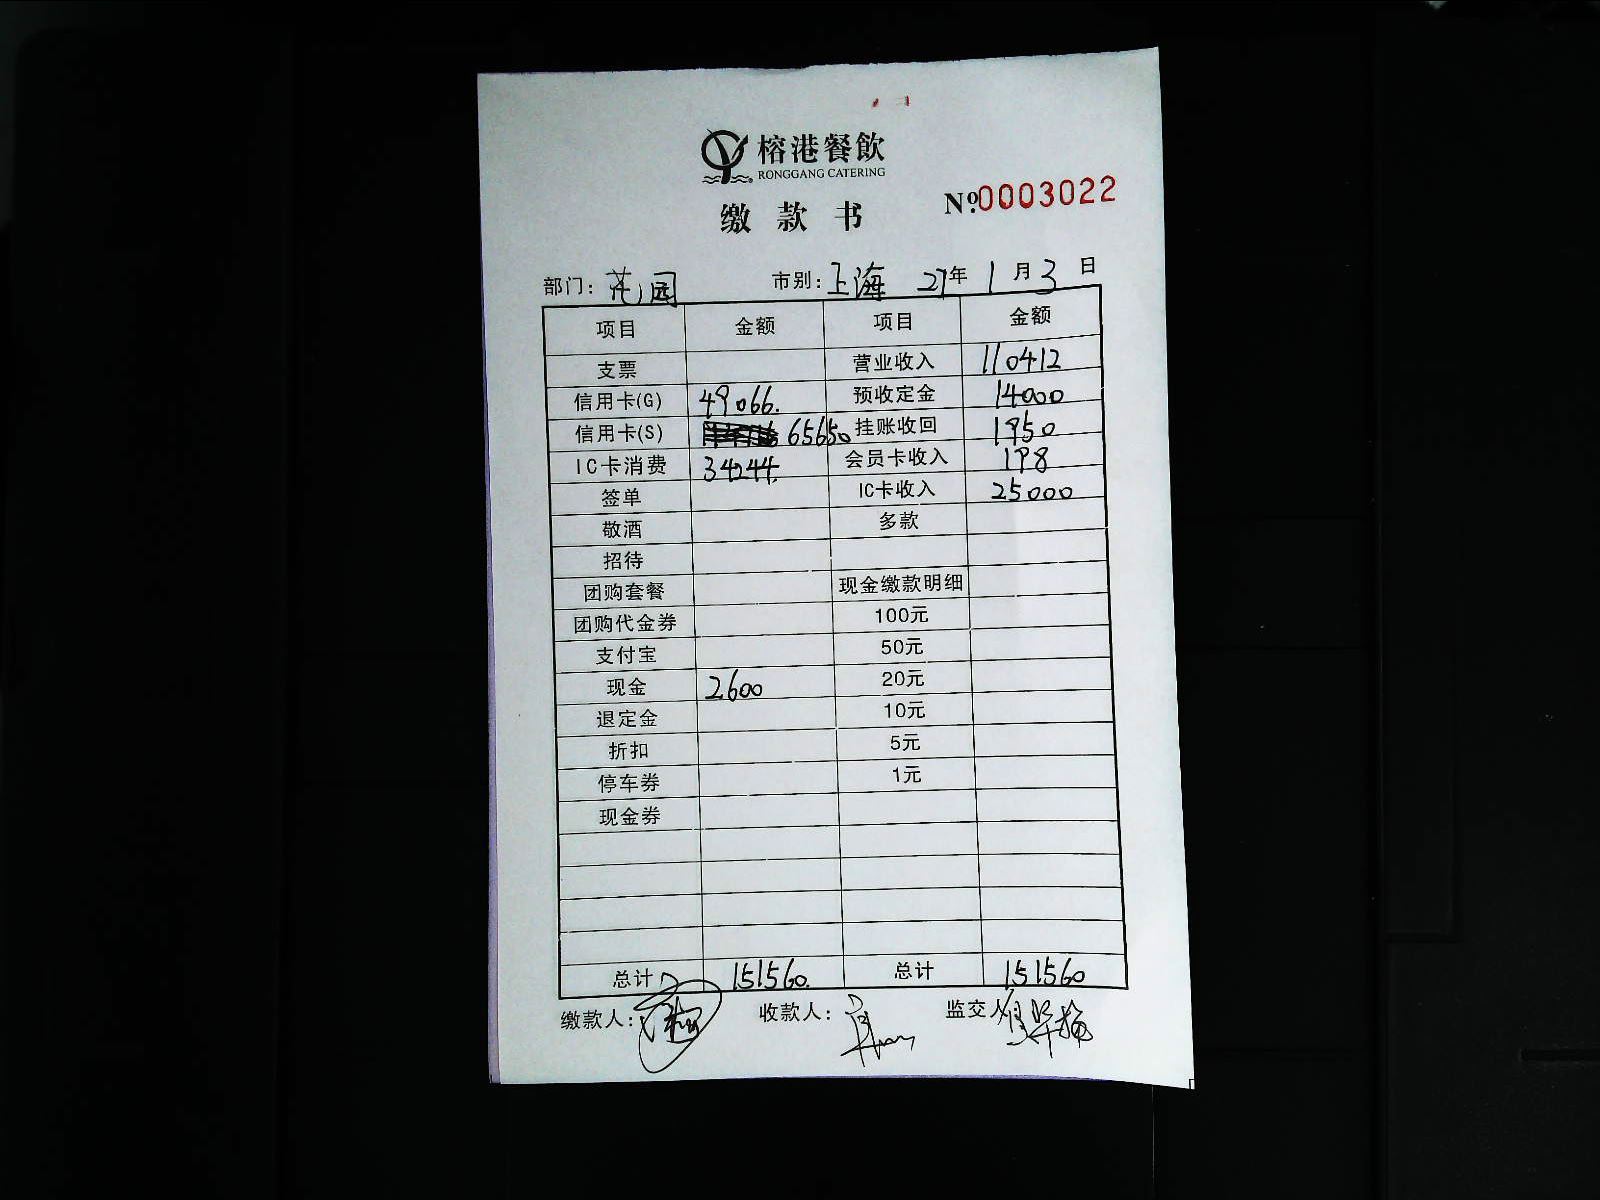 榕港餐飲
RONGGANG CATERING
缴款书 Nº.0003022
部门：花园 市别：上海 21年1月3日
项目 金额 项目 金额
支票 营业收入 110412
信用卡(G) 49066. 预收定金 14000
信用卡(S) 65650 挂账收回 1950
IC卡消费 34244. 会员卡收入 198
签单 IC卡收入 25000
敬酒 多款
招待
团购套餐 现金缴款明细
团购代金券 100元
支付宝 50元
现金 2600 20元
退定金 10元
折扣 5元
停车券 1元
现金券
总计 151560. 总计 151560
缴款人： 收款人： 监交人